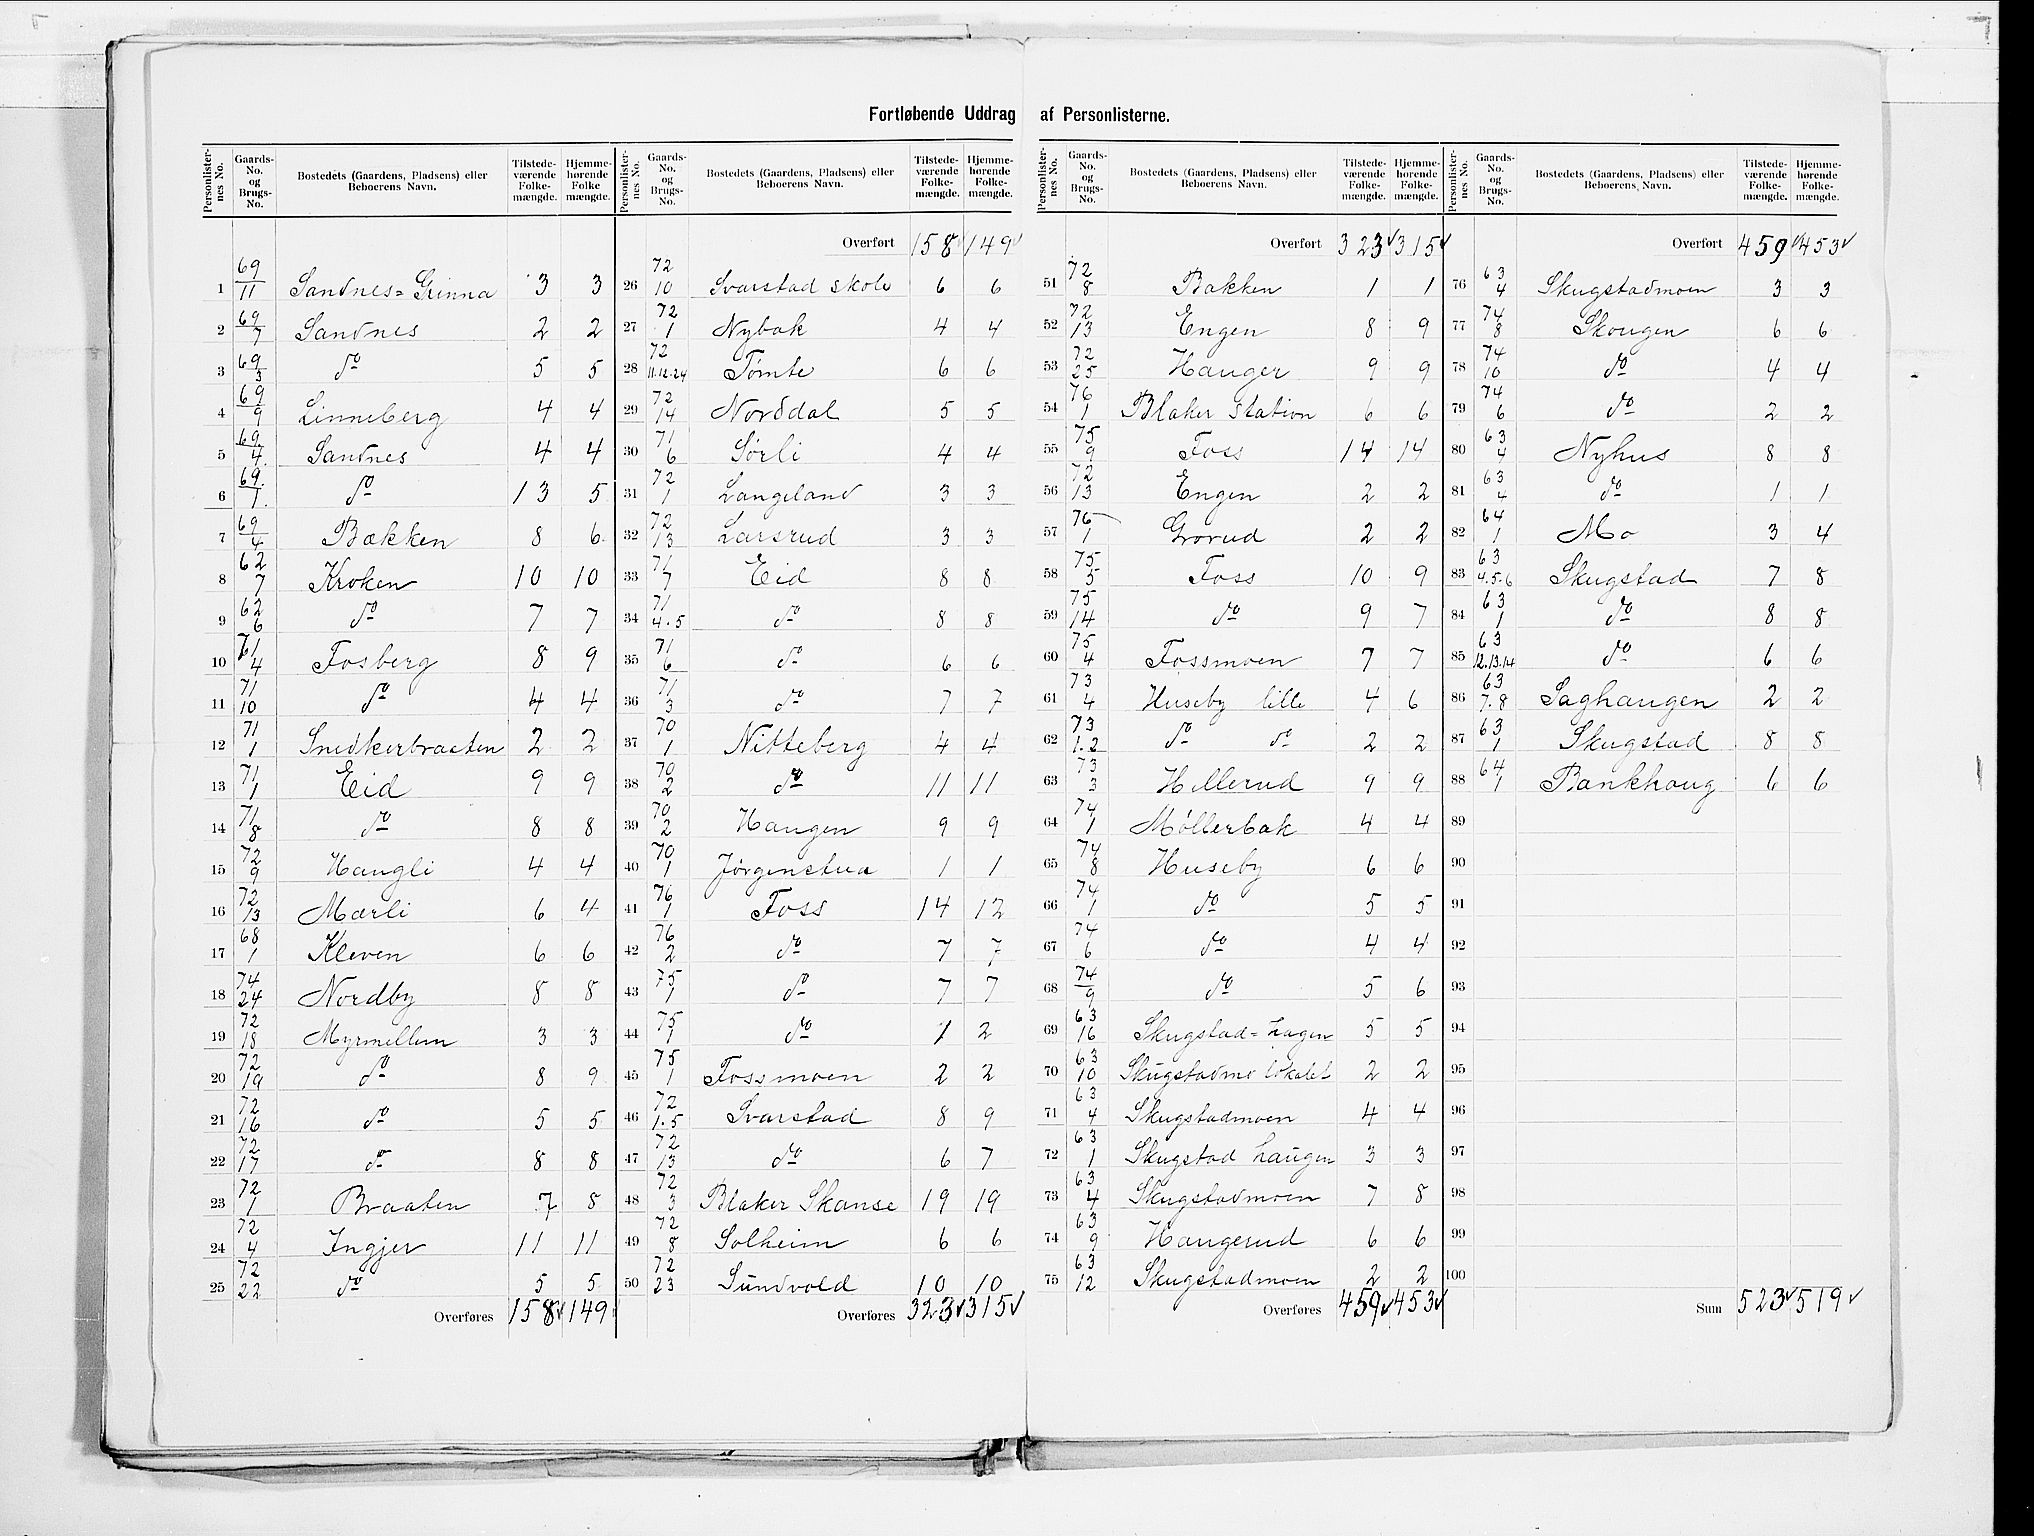 Fortløbende Uddrag af Personlisterne.
Personlister-nes No. Gaards-No. og Brugs-No. Bostedets (Gaardens, Pladsens) eller Beboerens Navn. Tilstede-værende Folke-mængde. Hjemme-hørende Folke mængde.
1 69/11 Sandnes=Grinna 3 3
2 69/7 Sandnes 2 2
3 69/3 do 5 5
4 69/9 Linneberg 4 4
5 69/4 Sandnes 4 4
6 69/1 do 13 5
7 69/4 Bækken 8 6
8 62/7 Kroken 10 10
9 62/6 do 7 7
10 71/4 Fosberg 8 9
11 71/10 do 4 4
12 71/1 Snedkerbraaten 2 2
13 71/1 Eid 9 9
14 71/8 do 8 8
15 72/9 Haugli 4 4
16 72/13 Marli 6 4
17 68/1 Kleven 6 6
18 74/24 Nordby 8 8
19 72/18 Myrmellem 3 3
20 72/19 do 8 9
21 72/16 do 5 5
22 72/17 do 8 8
23 72/1 Braaten 7 8
24 72/4 Ingjer 11 11
25 72/22 do 5 5
Overføres 158 149
Personlister-nes No. Gaards-No. og Brugs-No. Bostedets (Gaardens, Pladsens) eller Beboerens Navn. Tilstede-værende Folke-mængde. Hjemme-hørende Folke-mængde.
Overført 158 149
26 72/10 Svarstad skole 6 6
27 72/1 Nybak 4 4
28 72/11.12.24 Tømte 6 6
29 72/14 Norddal 5 5
30 71/6 Sørli 4 4
31 72/1 Langeland 3 3
32 72/13 Larsrud 3 3
33 71/7 Eid 8 8
34 71/4.5 do 8 8
35 71/6 do 6 6
36 71/3 do 7 7
37 70/1 Nitteberg 4 4
38 70/2 do 11 11
39 70/2 Haugen 9 9
40 70/1 Jørgenstua 1 1
41 76/1 Foss 14 12
42 76/2 do 7 7
43 75/1 do 7 7
44 75/1 do 1 2
45 75/1 Fossmoen 2 2
46 72/1.5 Svarstad 8 9
47 72/13 do 6 7
48 72/3 Blaker Skanse 19 19
49 72/8 Solheim 6 6
50 72/23 Sundvold 10 10
Overføres 323 315
Personlister-nes No. Gaards-No. og Brugs-No. Bostedets (Gaardens, Pladsens) eller Beboerens Navn. Tilstede-værende Folke-mængde. Hjemme-hørende Folke-mængde.
Overført 323 315
51 72/8 Bakken 1 1
52 72/13 Engen 8 9
53 72/25 Hauger 9 9
54 76/1 Blaker station 6 6
55 75/9 Foss 14 14
56 72/13 Engen 2 2
57 76/1 Grorud 2 2
58 75/5 Foss 10 9
59 75/14 do 9 7
60 75/4 Fossmoen 7 7
61 73/4 Huseby lille 4 6
62 73/1.2 do do 2 2
63 73/3 Hillerud 9 9
64 74/1 Møllerbak 4 4
65 74/8 Huseby 6 6
66 74/1 do 5 5
67 74/6 do 4 4
68 74/9 do 5 6
69 63/16 Skugstad=hagen 5 5
70 63/10 Skugstadmo lokalet 2 2
71 63/4 Skugstadmoen 4 4
72 63/1 Skugstad haugen 3 3
73 63/4 Skugstadmoen 7 8
74 63/9 Haugerud 6 6
75 63/12 Skugstadmoen 2 2
Overføres 459 453
Personlister-nes No. Gaards-No. og Brugs-No. Bostedets (Gaardens, Pladsens) eller Beboerens Navn. Tilstede-værende Folke-mængde. Hjemme-hørende Folke-mængde.
Overført 459 453
76 63/4 Skugstadmoen 3 3
77 74/8 Skougen 6 6
78 74/10 do 4 4
79 74/6 do 2 2
80 63/4 Nyhus 8 8
81 63/4 do 1 1
82 64/1 Mo 3 4
83 63/4.5.6 Skugstad 7 8
84 63/1 do 8 8
85 63/12.13.14 do 6 6
86 63/7.8 Saghaugen 2 2
87 63/1 Skugstad 8 8
88 64/1 Bankhaug 6 6
89
90
91
92
93
94
95
96
97
98
99
100
Sum 523 519